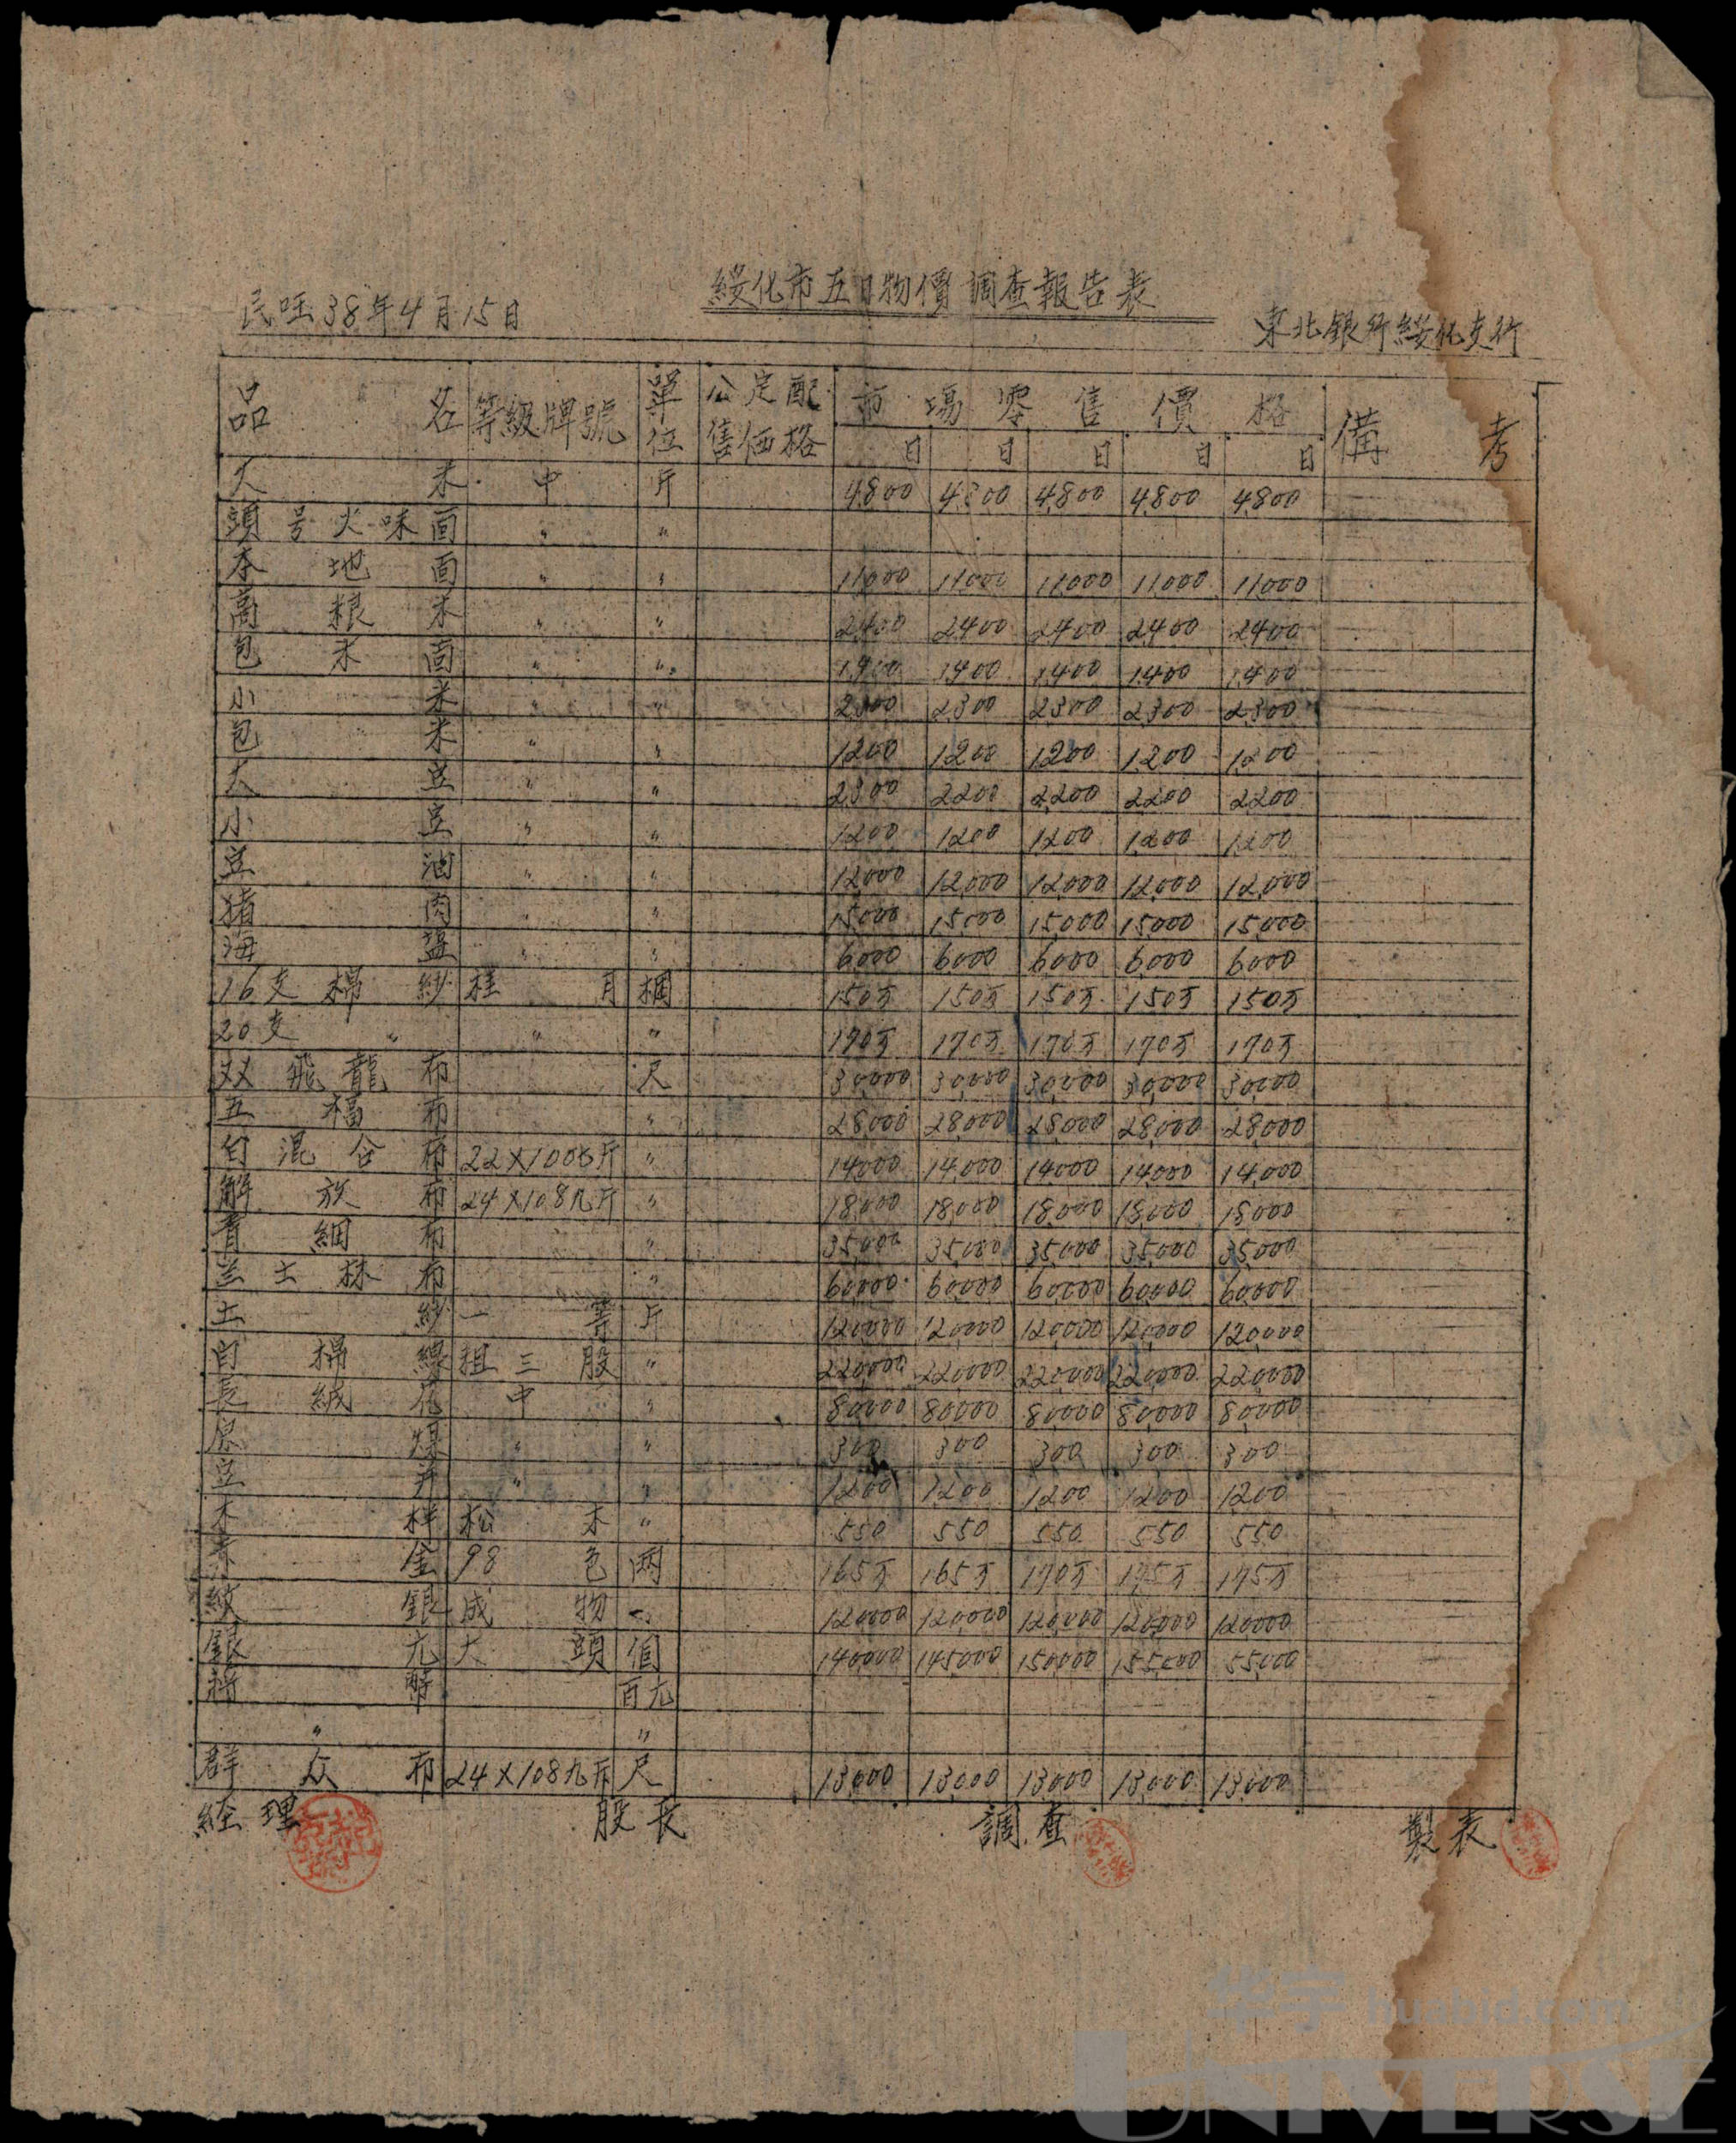 綏化市五日物價調查報告表
民国38年4月15日
東北銀行綏化支行
品名 等級牌號 單位 公定配售価格 市場零售價格 備考
日 日 日 日 日
大米 中 斤 4800 4800 4800 4800 4800
頭号火味面 〃 〃
本地面 〃 〃 11000 11000 11000 11000 11000
高粮米 〃 〃 2400 2400 2400 2400 2400
包米面 〃 〃 1400 1400 1400 1400 1400
小米 〃 〃 2300 2300 2300 2300 2300
包米 〃 〃 1200 1200 1200 1200 1200
大豆 〃 〃 2200 2200 2200 2200
小豆 〃 〃 1200 1200 1200 1200 1200
豆油 〃 〃 12000 12000 12000 12000 12000
猪肉 〃 〃 15000 15000 15000 15000 15000
海盐 〃 〃 6000 6000 6000 6000 6000
16支棉紗 桂月 捆 150万 150万 150万 150万 150万
20支〃 〃 〃 170万 170万 170万 170万 170万
双飛龍布 尺 30000 30000 30000 30000 30000
五福布 〃 28000 28000 28000 28000 28000
白混合布 22×100 斤 〃 14000 14000 14000 14000 14000
解放布 24×108九斤 〃 18000 18000 18000 18000 18000
青細布 〃 35000 35000 35000 35000 35000
兰士林布 〃 60000 60000 60000 60000 60000
土紗 一等 斤 120000 120000 120000 120000 120000
白棉線 粗三股 〃 220000 220000 220000 220000 220000
長絨花 中 〃 80000 80000 80000 80000 80000
原煤 〃 〃 300 300 300 300 300
豆并 〃 〃 1200 1200 1200 1200 1200
木柈 松木 〃 550 550 550 550 550
赤金 98色 両 165万 165万 170万 175万 175万
紋銀 成物 〃 120000 120000 120000 120000 120000
銀元 大頭 個 140000 145000 150000 155000 55000
幣 百元
〃 〃
群众布 24×108九斤 尺 13000 13000 13000 13000 13000
経理 股長 調查 製表
华宇 huabid.com
UNIVERSE